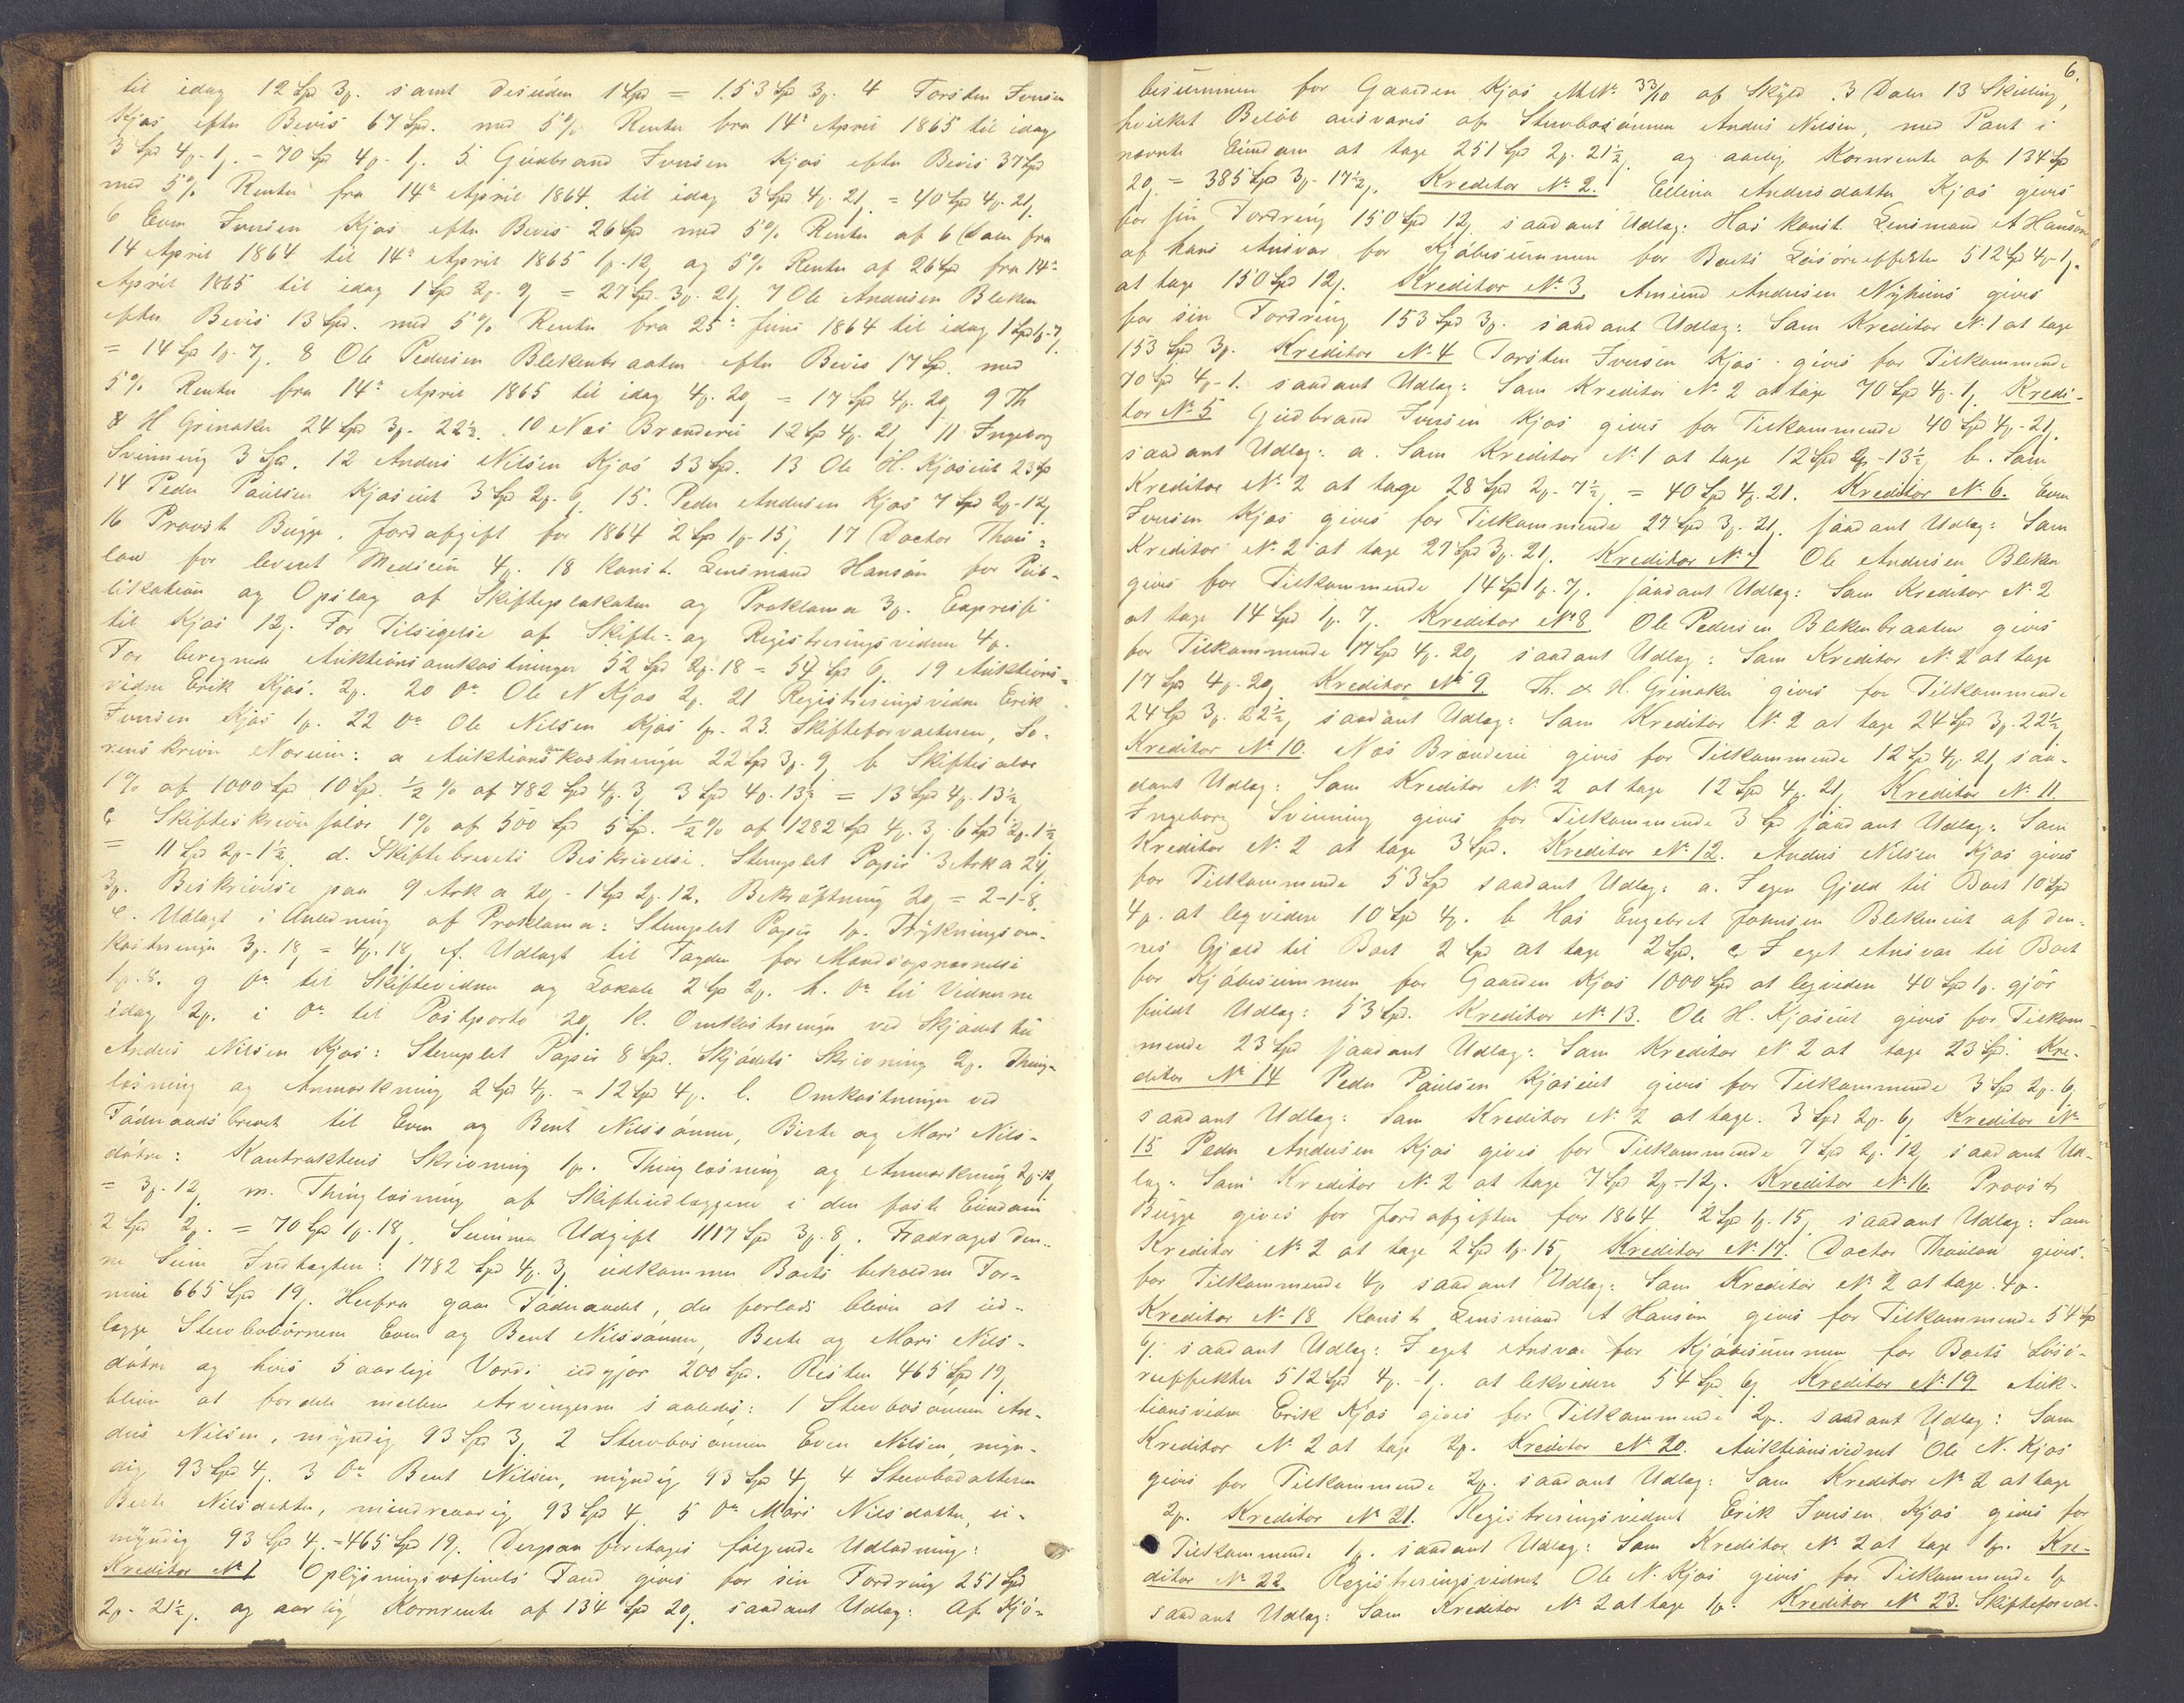 til idag 12 Spd 3ƒ. samt desuden 1 Spd = 153 Spd 3ƒ. 4 Torsten Iversen
Kjos efter Bevis 67 Spd. med 5% Renter fra 14de April 1865 til idag
3 Spd 4ƒ-1ƒ. = 70 Spd 4ƒ-1ƒ. 5. Gudbrand Iversen Kjos efter Bevis 37 Spd
med 5% Renter fra 14de April 1864 til idag 3 Spd 4ƒ. 21ƒ. = 40 Spd 4ƒ-21ƒ.
6 Even Iversen Kjos efter Bevis 26 Spd med 5% Renter af 6 Daler fra
14 April 1864 til 14de April 1865 1ƒ.-12ƒ og 5% Renter af 26 Spd fra 14de
April 1865 til idag 1 Spd 2ƒ. 9ƒ = 27 Spd. 3ƒ. 21ƒ. 7 Ole Andersen Bleken
efter Bevis 13 Spd. med 5% Renter fra 25de Juni 1864 til idag 1 Spd 1ƒ-7ƒ
= 14 Spd 1ƒ. 7ƒ. 8 Ole Pedersen Blekenbraaten efter Bevis 17 Spd. med
5% Renter fra 14de April 1865 til idag 4ƒ. 20ƒ = 17 Spd 4ƒ. 20ƒ 9 Th
& H Grinaker 24 Spd 3ƒ. 22½. 10 Næs Brænderi 12 Spd 4ƒ. 21ƒ 11 Ingeborg
Svinning 3 Spd. 12 Anders Nilsen Kjos 53 Spd. 13 Ole H. Kjoseiet 23 Spd
14 Peder Paulsen Kjoseiet 3 Spd 2ƒ. 6ƒ 15. Peder Andersen Kjos 7 Spd 2ƒ-12ƒ
16 Provst Bugge. Jordafgift for 1864 2 Spd 1ƒ-15ƒ 17 Doctor Thau-
low for leveret Medicin 4ƒ. 18 Konst. Lensmand Hansen for Pub-
likation og Opslag af Skifteplakater og Proklama 3ƒ. Expresse
til Kjos 12ƒ. For Tilsigelse af Skifte- og Registreringsvidner 4ƒ.
For beregnede Auktionsomkostninger 52 Spd 2ƒ. 18 = 54 Spd 6ƒ. 19 Auktions-
vidne Erik Kjos. 2ƒ. 20 do Ole N Kjos 2ƒ. 21 Registreringsvidne Erik
Iversen Kjos 1ƒ. 22 do Ole Nilsen Kjos 1ƒ. 23. Skifteforvalteren, So-
renskriver Norum: a Auktionsomkostninger 22 Spd 3ƒ. 9ƒ b Skiftesalær
1% af 1000 Spd 10 Spd. ½% af 782 Spd 4ƒ. 3ƒ 3 Spd 4ƒ. 13½ = 13 Spd 4ƒ. 13½
c Skifteskriversalær 1% af 500 Spd 5 Sp. ½% af 1282 Spd 4ƒ. 3ƒ. 6 Spd 2ƒ. 1½
= 11 Spd 2ƒ-1½. d. Skiftebrevets Beskrivelse. Stemplet Papir 3 Ark a 24ƒ
3ƒ. Beskrivelse paa 9 Ark a 20ƒ - 1 Spd 2ƒ. 12. Bekræftning 20ƒ = 2-1-8.
e. Udlagt i Anledning af Proklama: Stemplet Papir 1ƒ. Trykningsom-
kostninger 3ƒ. 18ƒ = 4ƒ. 18ƒ f. Udlagt til Fogden for Mandsopnævnelse
1ƒ. 8. g do til Skiftevidner og Lokale 2 Spd 2ƒ. h. do til Vidnerne
idag 2ƒ. i do til Postporto 20ƒ k. Omkostninger ved Skjødet til
Anders Nilsen Kjos: Stemplet Papir 8 Spd. Skjødets Skrivning 2ƒ. Thing-
læsning og Anmærkning 2 Spd 4ƒ. = 12 Spd 4ƒ. l. Omkostninger ved
Føderaadsbrevet til Even og Bent Nilssønner, Berte og Mari Nils-
døtre: Kontraktens Skrivning 1ƒ. Thinglæsning og Anmærkning 2ƒ-12ƒ
= 3ƒ. 12ƒ. m. Thinglæsning af Skifteudlæggene i den faste Eiendom
2 Spd 2ƒ. = 70 Spd 1ƒ. 18ƒ. Summa Udgift 1117 Spd 3ƒ. 8ƒ. Fradrages den-
ne Sum Indtægten: 1782 Spd 4ƒ. 3ƒ udkommer Boets beholdne For-
mue 665 Spd 19ƒ. Herfra gaar Føderaadet, der forlods bliver at ud-
lægge Stervbobørnene Even og Bent Nilssønner, Berte og Mari Nils-
døtre og hvis 5 aarlige Værdi udgjør 200 Spd. Resten 465 Spd 19ƒ
bliver at fordele mellem Arvingerne saaledes: 1 Stervbosønnen An-
ders Nilsen, myndig 93 Spd 3ƒ 2 Stervbosønnen Even Nilsen, myn-
dig 93 Spd 4ƒ. 3 do Bent Nilsen, myndig 93 Spd 4ƒ 4 Stervbodatteren
Berte Nilsdatter, mindreaarig 93 Spd 4ƒ 5 do Mari Nilsdatter, u-
myndig 93 Spd 4ƒ. = 465 Spd 19ƒ. Derpaa foretages følgende Udlodning:
Kreditor No 1 Oplysningsvæsenets Fond gives for sin Fordring 251 Spd
2ƒ- 21½ƒ. og aarlig Kornrente af 134 Spd 20ƒ. saadant Udlæg: Af Kjø-
6.
besummen for Gaarden Kjos MNo 33/10 af Skyld 3 Daler 13 Skilling,
hvilket Beløb ansvares af Stervbosønnen Anders Nilsen, med Pant i
nævnte Eiendom at tage 251 Spd 2ƒ. 21½ƒ og aarlig Kornrente af 134 Spd
20ƒ = 385 Spd 3ƒ- 17½ƒ. Kreditor No 2. Ellina Andersdatter Kjos gives
for sin Fordring 150 Spd 12ƒ. saadant Udlæg: Hos konst. Lensmand A Hansen
af hans Ansvar for Kjøbesummen for Boets Løsøreeffekter 512 Spd 4ƒ-1ƒ.
at tage 150 Spd 12ƒ. Kreditor No 3 Amund Andersen Nyhuus gives
for sin Fordring 153 Spd 3ƒ. saadant Udlæg: Som Kreditor No 1 at tage
153 Spd 3ƒ. Kreditor No 4 Torsten Iversen Kjos gives for Tilkommende
70 Spd 4ƒ-1. saadant Udlæg: Som Kreditor No 2 at tage 70 Spd 4ƒ. 1ƒ. Kredi-
tor No 5 Gudbrand Iversen Kjos gives for Tilkommende 40 Spd 4ƒ-21ƒ.
saadant Udlæg: a. Som Kreditor No 1 at tage 12 Spd 2ƒ-13½ƒ b. Som
Kreditor No 2 at tage 28 Spd 2ƒ- 7½ƒ = 40 Spd 4ƒ. 21. Kreditor No 6. Even
Iversen Kjos gives for Tilkommende 27 Spd 3ƒ-21ƒ. saadant Udlæg: Som
Kreditor No 2 at tage 27 Spd 3ƒ. 21ƒ. Kreditor No 7 Ole Andersen Bleken
gives for Tilkommende 14 Spd 1ƒ. 7ƒ. saadant Udlæg: Som Kreditor No 2
at tage 14 Spd 1ƒ. 7ƒ. Kreditor No 8 Ole Pedersen Blekenbraaten gives
for Tilkommende 17 Spd 4ƒ. 20ƒ saadant Udlæg: Som Kreditor No 2 at tage
17 Spd 4ƒ-20ƒ Kreditor No 9. Th. & H. Grinaker gives for Tilkommende
24 Spd 3ƒ. 22½ƒ saadant Udlæg: Som Kreditor No 2 at tage 24 Spd 3ƒ. 22½
Kreditor No 10. Næs Brænderi gives for Tilkommende 12 Spd 4ƒ. 21ƒ saa-
dant Udlæg: Som Kreditor No 2 at tage 12 Spd 4ƒ. 21ƒ Kreditor No 11
Ingeborg Svinning gives for Tilkommende 3 Spd saadant Udlæg: Som
Kreditor No 2 at tage 3 Spd. Kreditor No 12. Anders Nilsen Kjos gives
for Tilkommende 53 Spd saadant Udlæg: a. I egen Gjæld til Boet 10 Spd
4ƒ. at leqvidere 10 Spd 4ƒ. b Hos Engebret Johnsen Blekeneiet af den-
nes Gjæld til Boet 2 Spd at tage 2 Spd. c I eget Ansvar til Boet
for Kjøbesummen for Gaarden Kjos 1000 Spd at leqvidere 40 Spd 1ƒ. gjør
fuldt Udlæg: 53 Spd. Kreditor No 13. Ole H. Kjoseiet gives for Tilkom-
mende 23 Spd saadant Udlæg: Som Kreditor No 2 at tage 23 Spd. Kre-
ditor No 14 Peder Paulsen Kjoseiet gives for Tilkommende 3 Spd 2ƒ. 6ƒ
saadant Udlæg: Som Kreditor No 2 at tage. 3 Spd 2ƒ. 6ƒ Kreditor No
15 Peder Andersen Kjos gives for Tilkommende 7 Spd 2ƒ. 12ƒ saadant Ud-
læg: Som Kreditor No 2 at tage 7 Spd 2ƒ-12ƒ. Kreditor No 16. Provst
Bugge gives for Jordafgiften for 1864 2 Spd 1ƒ. 15ƒ saadant Udlæg: Som
Kreditor No 2 at tage 2 Spd 1ƒ-15ƒ Kreditor No 17. Doctor Thaulow gives
for Tilkommende 4ƒ saadant Udlæg: Som Kreditor No 2 at tage. 4ƒ.
Kreditor No 18 Konst Lensmand A Hansen gives for Tilkommende 54 Spd
6ƒ. saadant Udlæg: I eget Ansvar for Kjøbesummen for Boets Løsø-
reeffekter 512 Spd 4ƒ-1ƒ. at lekvidere 54 Spd 6ƒ Kreditor No 19 Auk-
tionsvidne Erik Kjos gives for Tilkommende 2ƒ. saadant Udlæg: Som
Kreditor No 2 at tage 2ƒ. Kreditor No 20. Auktionsvidnet Ole N. Kjos
gives for Tilkommende 2ƒ. saadant Udlæg: Som Kreditor No 2 at tage
2ƒ. Kreditor No 21. Registreringsvidnet Erik Iversen Kjos gives for
Tilkommende 1ƒ. saadant Udlæg: Som Kreditor No 2 at tage 1ƒ. Kre-
ditor No 22 Registreringsvidnet Ole N. Kjos gives for Tilkommende 1ƒ
saadant Udlæg: Som Kreditor No 2 at tage 1ƒ. Kreditor No 23. Skifteforval-